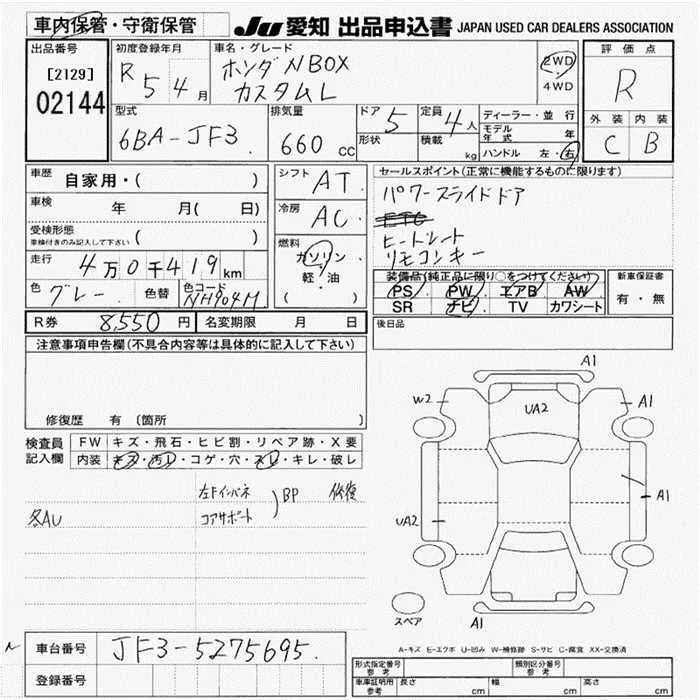 車内保管・守衛保管
JU 愛知 出品申込書 JAPAN USED CAR DEALERS ASSOCIATION
出品番号
[2129]
02144
初度登録年月
R 5 4 月
車名・グレード
ホンダ N BOX
カスタム L
2WD
・
4WD
評価点
R
外装 内装
C B
型式
6BA-JF3
排気量
660 cc
ドア 5
形状
定員 4 人
積載 kg
ディーラー・並 行
モデル年式 年
ハンドル 左・右
車歴 自家用・( )
車検 年 月( 日)
受検形態
車検付きのみ記入して下さい ( )
走行 4万0千419km
色 グレー 色替 色コード NH904M
シフト AT
冷房 AC
燃料
ガソリン
軽・油
( )
セールスポイント(正常に機能するものに限ります)
パワースライドドア
ETC
ヒートシート
リモコンキー
装備品(純正品に限り○をつけてください)
PS・PW・エアB・AW
SR ナビ TV カワシート
新車保証書
有・無
R券 8,550 円 名変期限 月 日
後日品
注意事項申告欄(不具合内容等は具体的に記入して下さい)
修復歴 有 (箇所 )
検査員
記入欄
FW キズ・飛石・ヒビ割・リペア跡・X要
内装 キズ・汚レ・コゲ・穴・スレ・キレ・破レ
左Fインパネ
コアサポート
BP 修復
各AU
A1
W2
UA2
A1
UA2
A1
スペア
A1
A-キズ E-エクボ U-凹み W-補修跡 S-サビ C-腐食 XX-交換済
車台番号 JF3-5275695
登録番号
形式指定番号
参考
類別区分番号
参考
車庫証明用
参考
長さ cm 幅 cm 高さ cm